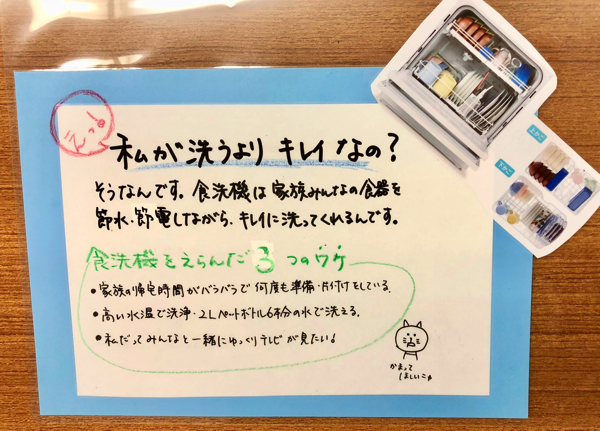 えっ!
私が洗うより キレイ なの?
そうなんです。食洗機は家族みんなの食器を
節水・節電しながら、キレイに洗ってくれるんです。
食洗機をえらんだ3つのワケ
・家族の帰宅時間がバラバラで何度も準備・片付けをしている。
・高い水温で洗浄・2Lペットボトル6本分の水で洗える。
・私だってみんなと一緒にゆっくりテレビが見たい!
かまって
ほしいニャ
上かご
下かご